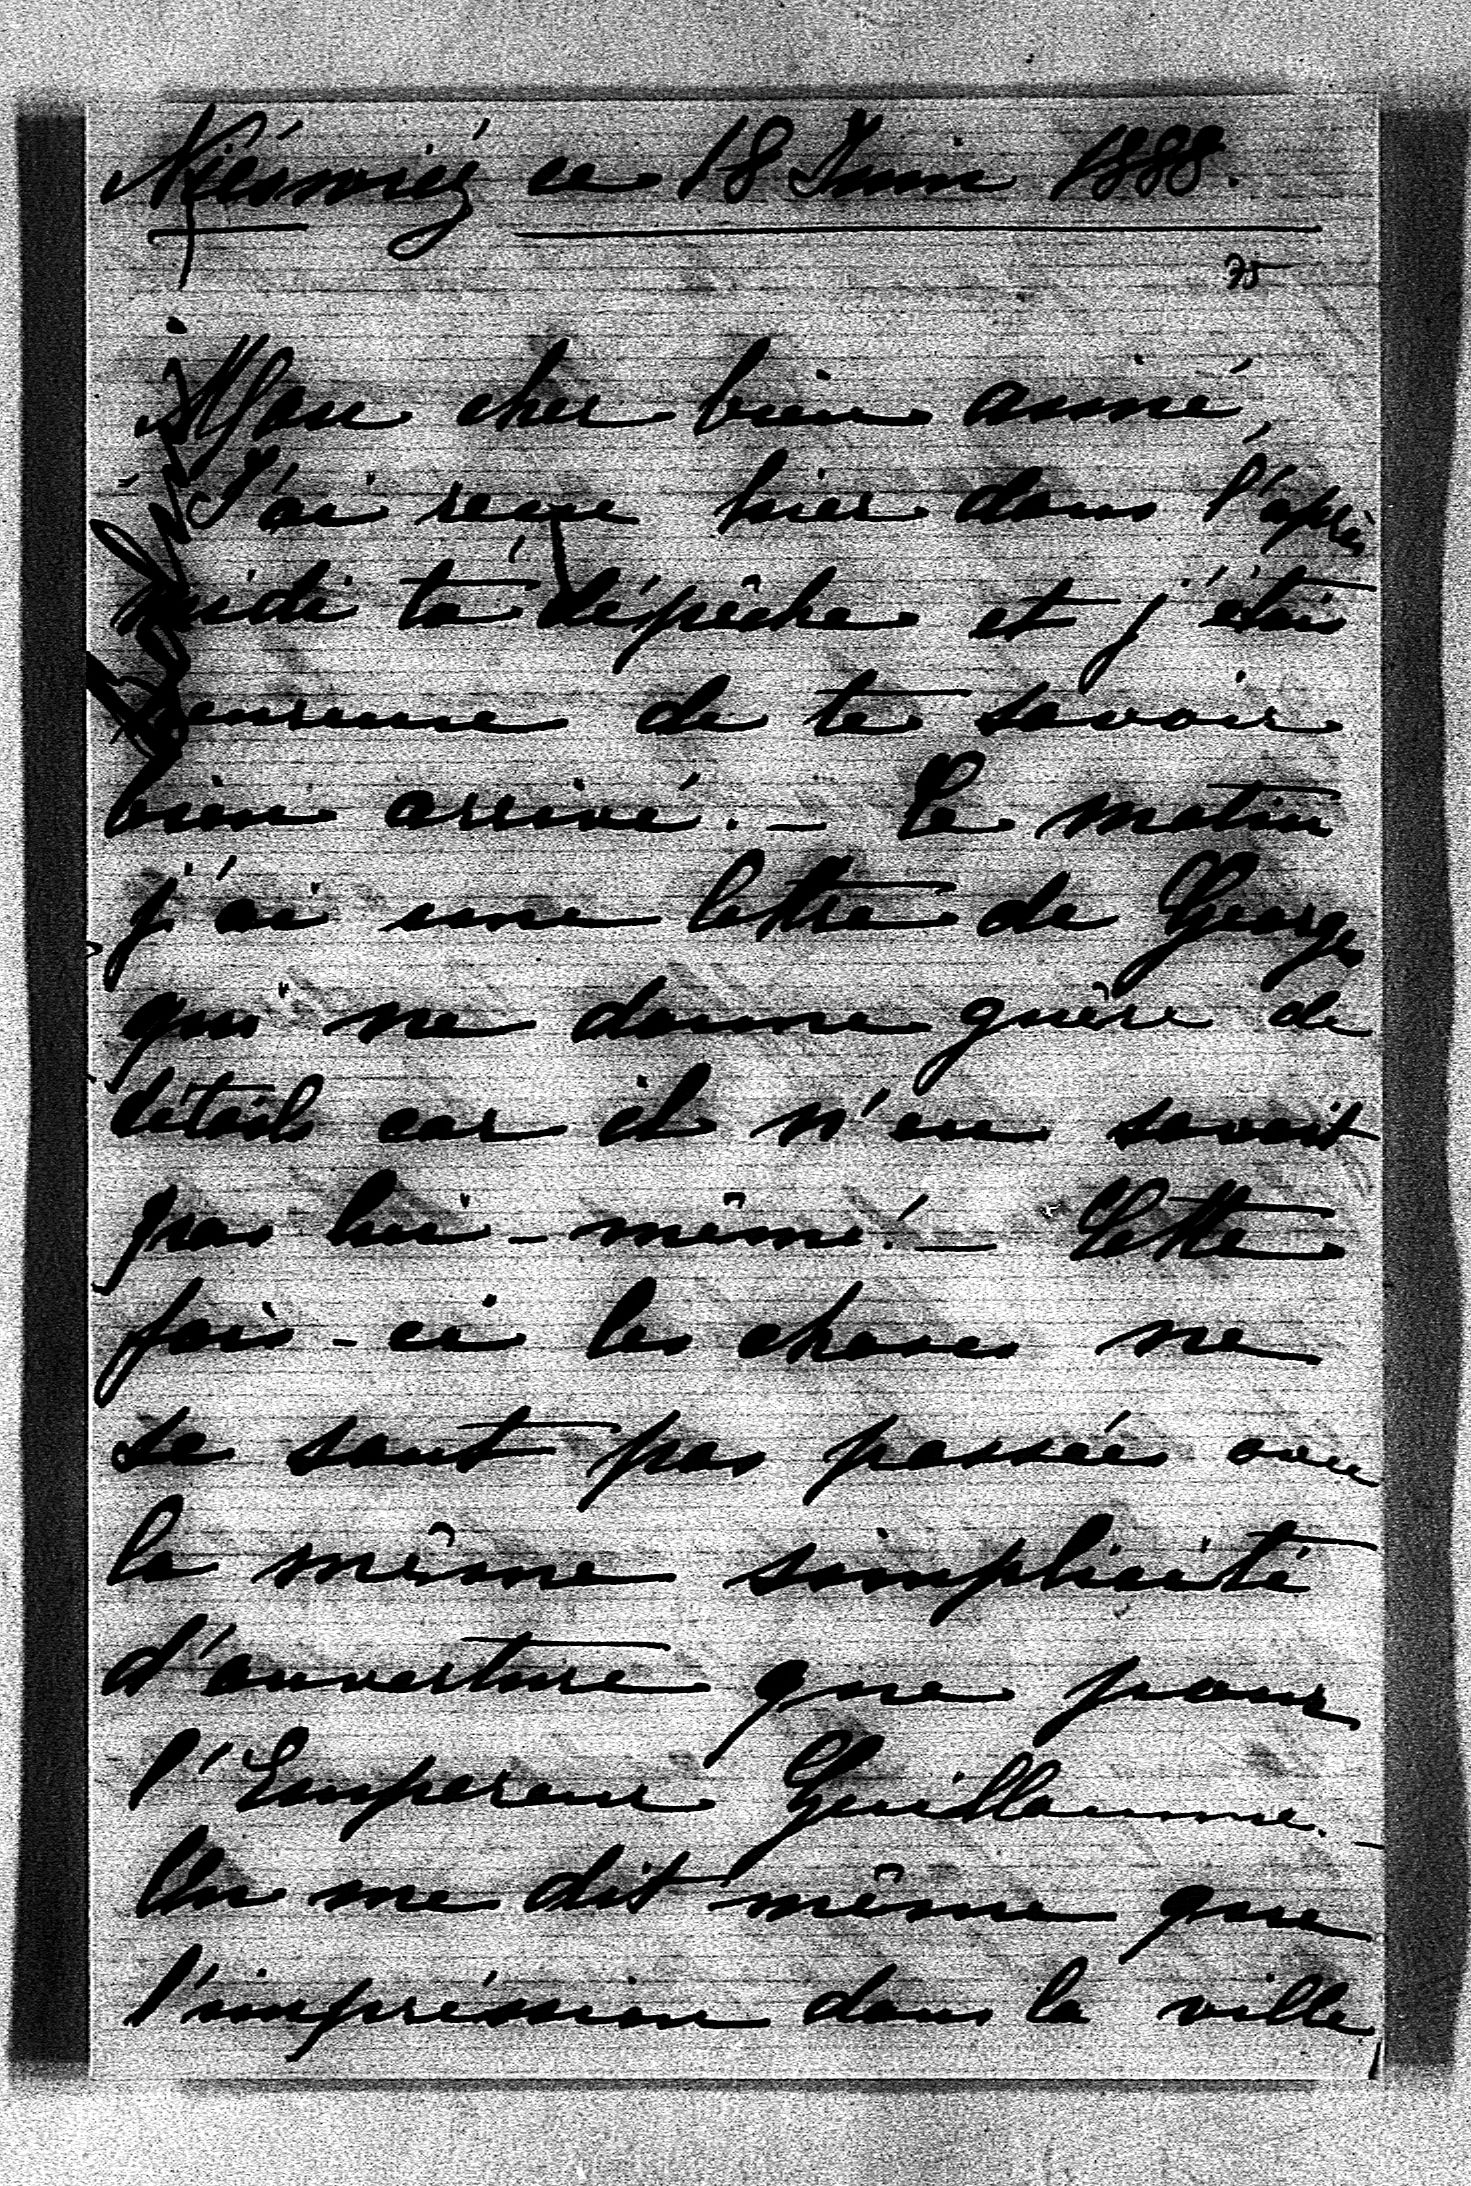 Nieśwież ce 18 Juin 1888.
35
Mon cher bien aimé,
J'ai reçu hier dans l'après
midi ta dépêche et j'étais
heureuse de te savoir
bien arrivé. – Ce matin
j'ai une lettre de George
qui ne donne guère de
détails car il n'en savait
pas lui-même! – Cette
fois-ci les choses ne
se sont pas passées avec
la même simplicité
d'ouverture que pour
l'Empereur Guillaume. –
On me dit même que
l'impression dans la ville